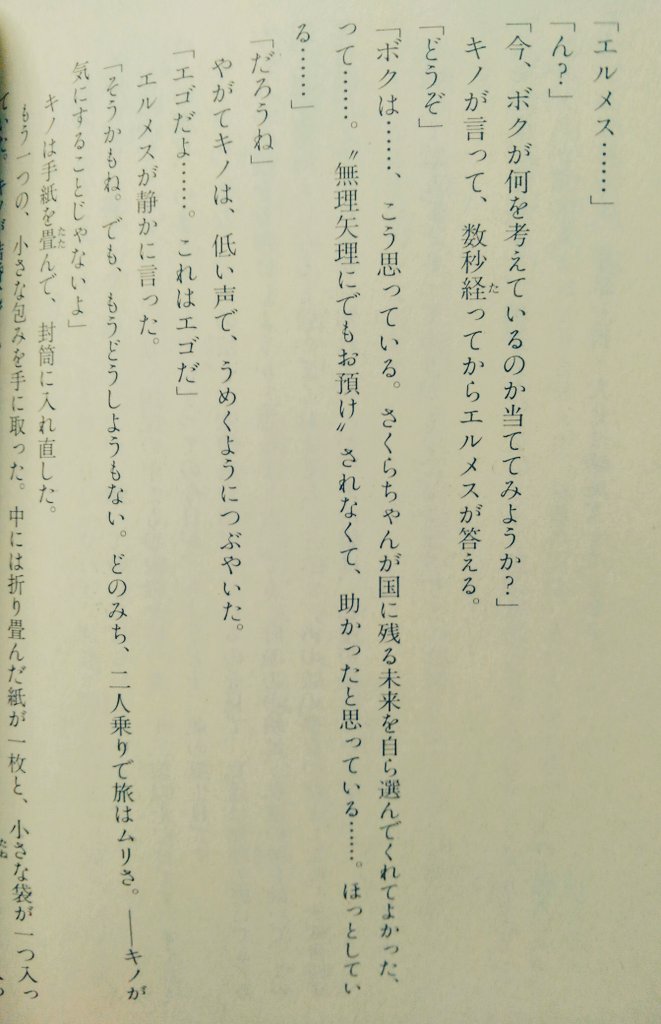 「エルメス……」
「ん？」
「今、ボクが何を考えているのか当ててみようか？」
キノが言って、数秒経ってからエルメスが答える。
「どうぞ」
「ボクは……、こう思っている。さくらちゃんが国に残る未来を自ら選んでくれてよかった、
って……。〝無理矢理にでもお預け〟されなくて、助かったと思っている……。ほっとしてい
る……」
「だろうね」
やがてキノは、低い声で、うめくようにつぶやいた。
「エゴだよ……。これはエゴだ」
エルメスが静かに言った。
「そうかもね。でも、もうどうしようもない。どのみち、二人乗りで旅はムリさ。――キノが
気にすることじゃないよ」
キノは手紙を畳んで、封筒に入れ直した。
もう一つの、小さな包みを手に取った。中には折り畳んだ紙が一枚と、小さな袋が一つ入っ
ていた。キノが